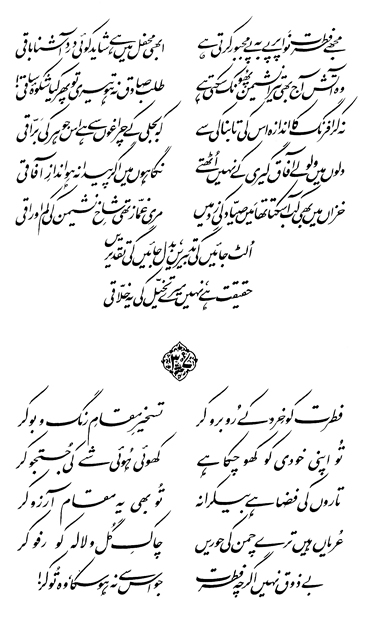 مجھے فطرت نوا پر پے بہ پے مجبور کرتی ہے
ابھی محفل میں ہے شاید کوئی درد آشنا باقی
وہ آتش آج بھی تیرا نشیمن پھونک سکتی ہے
طلب صادق نہ ہو تیری تو پھر کیا شکوۂ ساقی!
نہ کر افرنگ کا اندازہ اس کی تابناکی سے
کہ بجلی کے چراغوں سے ہے اس جوہر کی برّاقی
دلوں میں ولولے آفاق گیری کے نہیں اُٹھتے
نگاہوں میں اگر پیدا نہ ہو اندازِ آفاقی
خزاں میں بھی کب آ سکتا تھا میں صیّاد کی زد میں
مری غمّاز تھی شاخِ نشیمن کی کم اوراقی
اُلٹ جائیں گی تدبیریں، بدل جائیں گی تقدیریں
حقیقت ہے، نہیں میرے تخیّل کی یہ خلّاقی
فطرت کو خِرد کے رُوبرو کر
تسخیرِ مقامِ رنگ و بو کر
تُو اپنی خودی کو کھو چکا ہے
کھوئی ہُوئی شے کی جُستجو کر
تاروں کی فضا ہے بیکرانہ
تُو بھی یہ مقامِ آرزو کر
عُریاں ہیں ترے چمن کی حوریں
چاکِ گُل و لالہ کو رفو کر
بے ذوق نہیں اگرچہ فطرت
جو اس سے نہ ہو سکا، وہ تُو کر!